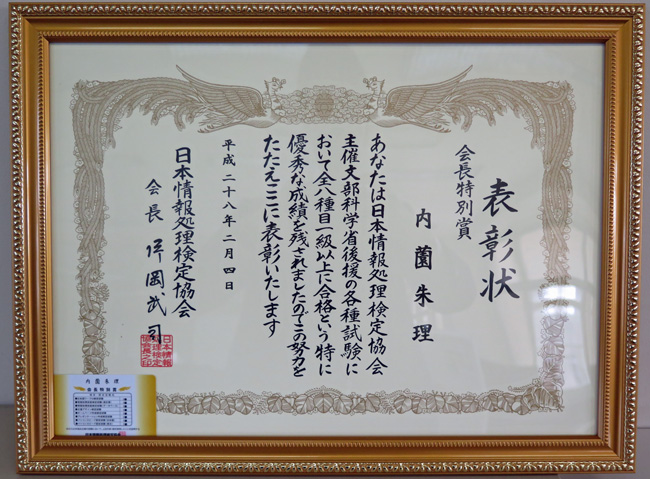 表彰状
会長特別賞
内薗朱理
あなたは日本情報処理検定協会
主催文部科学省後援の各種試験に
おいて全八種目一級以上に合格という特に
優秀な成績を残されましたのでこの努力を
たたえここに表彰いたします
平成二十八年二月四日
日本情報処理検定協会
会長 岡武司
内薗朱理
会長特別賞